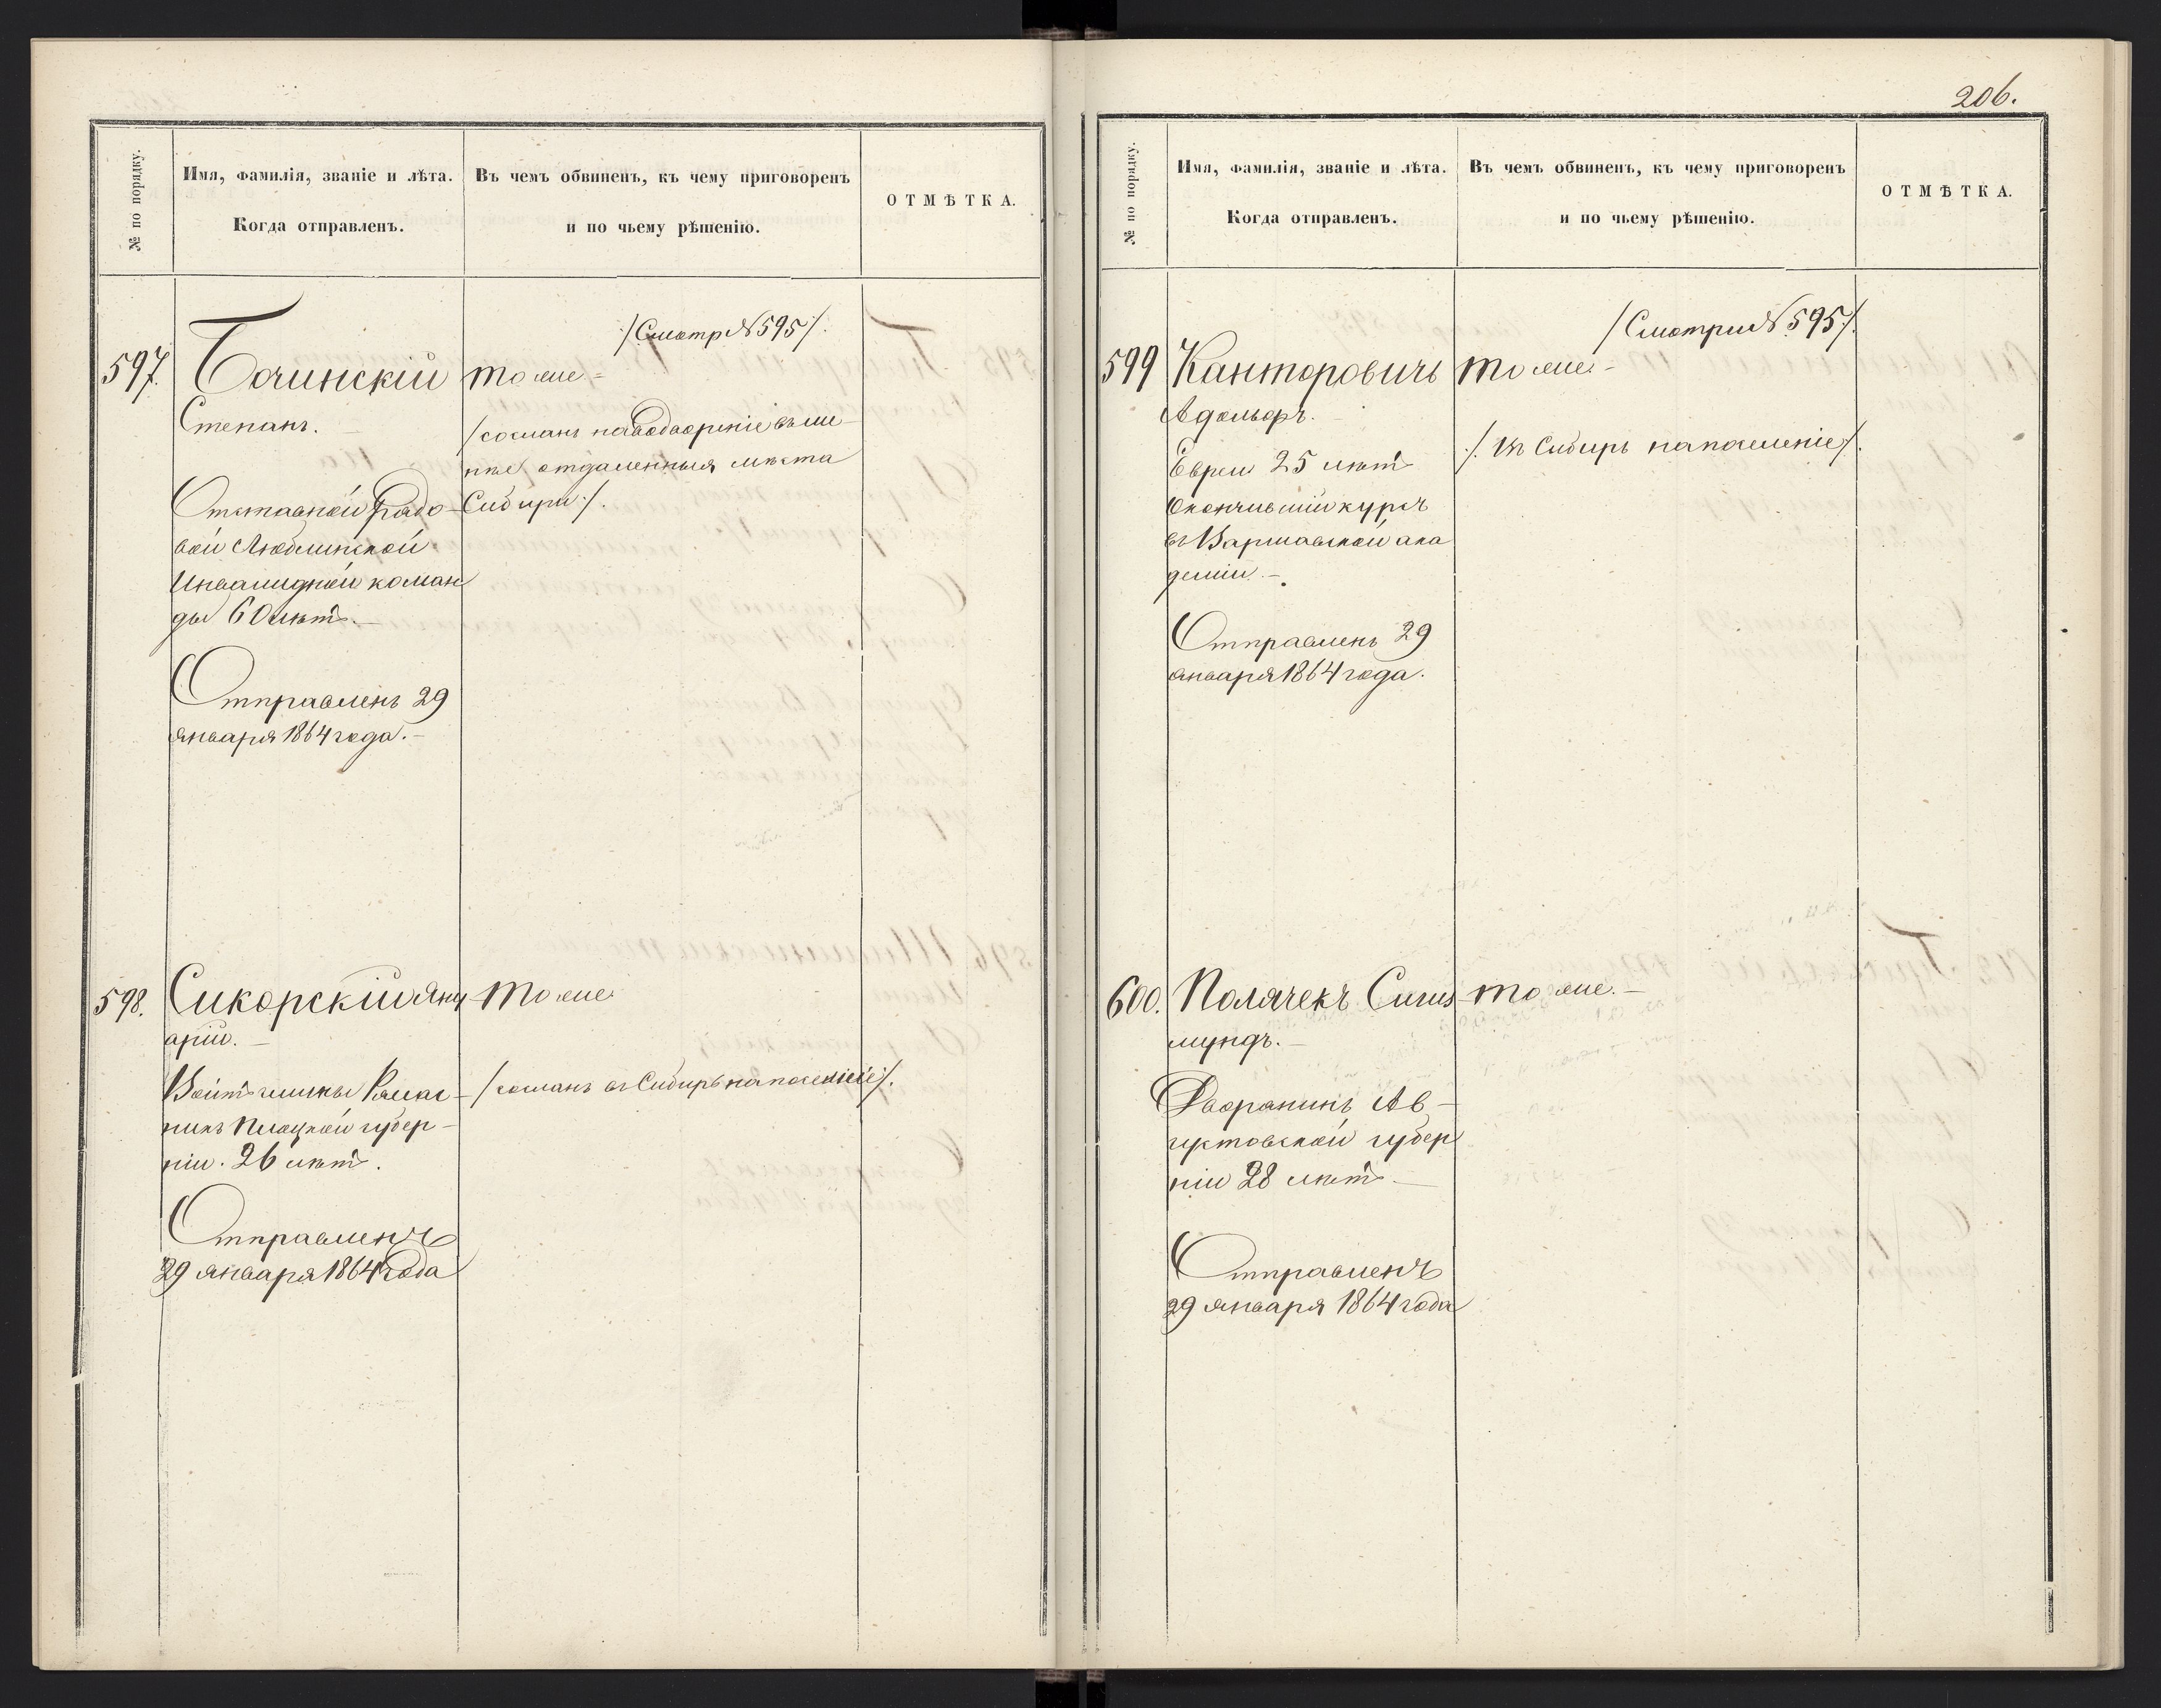 № по порядку.
Имя, фамилія, званіе и лѣта.
Когда отправленъ.
Въ чемъ обвиненъ, къ чему приговоренъ
и по чьему рѣшенію.
ОТМѢТКА.
/:Смотр № 595:/.
597. Бочинскій то же=
Степанъ.
/сосланъ на водвореніе въ ме-
нѣе отдаленныя мѣста
Сибири:/.
Отставной рядо-
вой Люблинской
Инвалидной коман
ды 60 лѣтъ.—
Отправленъ 29
января 1864 года.—
598. Сикорскій Яну- то же
арій.—
Войтъ гмины
/сосланъ въ Сибирь на поселеніе:/.
Плоцкой губер-
ніи. 26 лѣтъ.
Отправленъ
29 января 1864 года
206.
№ по порядку.
Имя, фамилія, званіе и лѣта.
Когда отправленъ.
Въ чемъ обвиненъ, къ чему приговоренъ
и по чьему рѣшенію.
ОТМѢТКА.
/Смотри № 595:/.
599 Канторовичъ то же.-
Адольфъ.
/:въ Сибирь на поселеніе:/.
Еврей 25 лѣтъ
окончившій курсъ
въ Варшавской ака
деміи.—
Отправленъ 29
января 1864 года.
600. Полячекъ Сигиз- то же.—
мундъ.—
Дворянинъ Ав-
густовской губер
ніи 28 лѣтъ.—
Отправленъ
29 января 1864 года